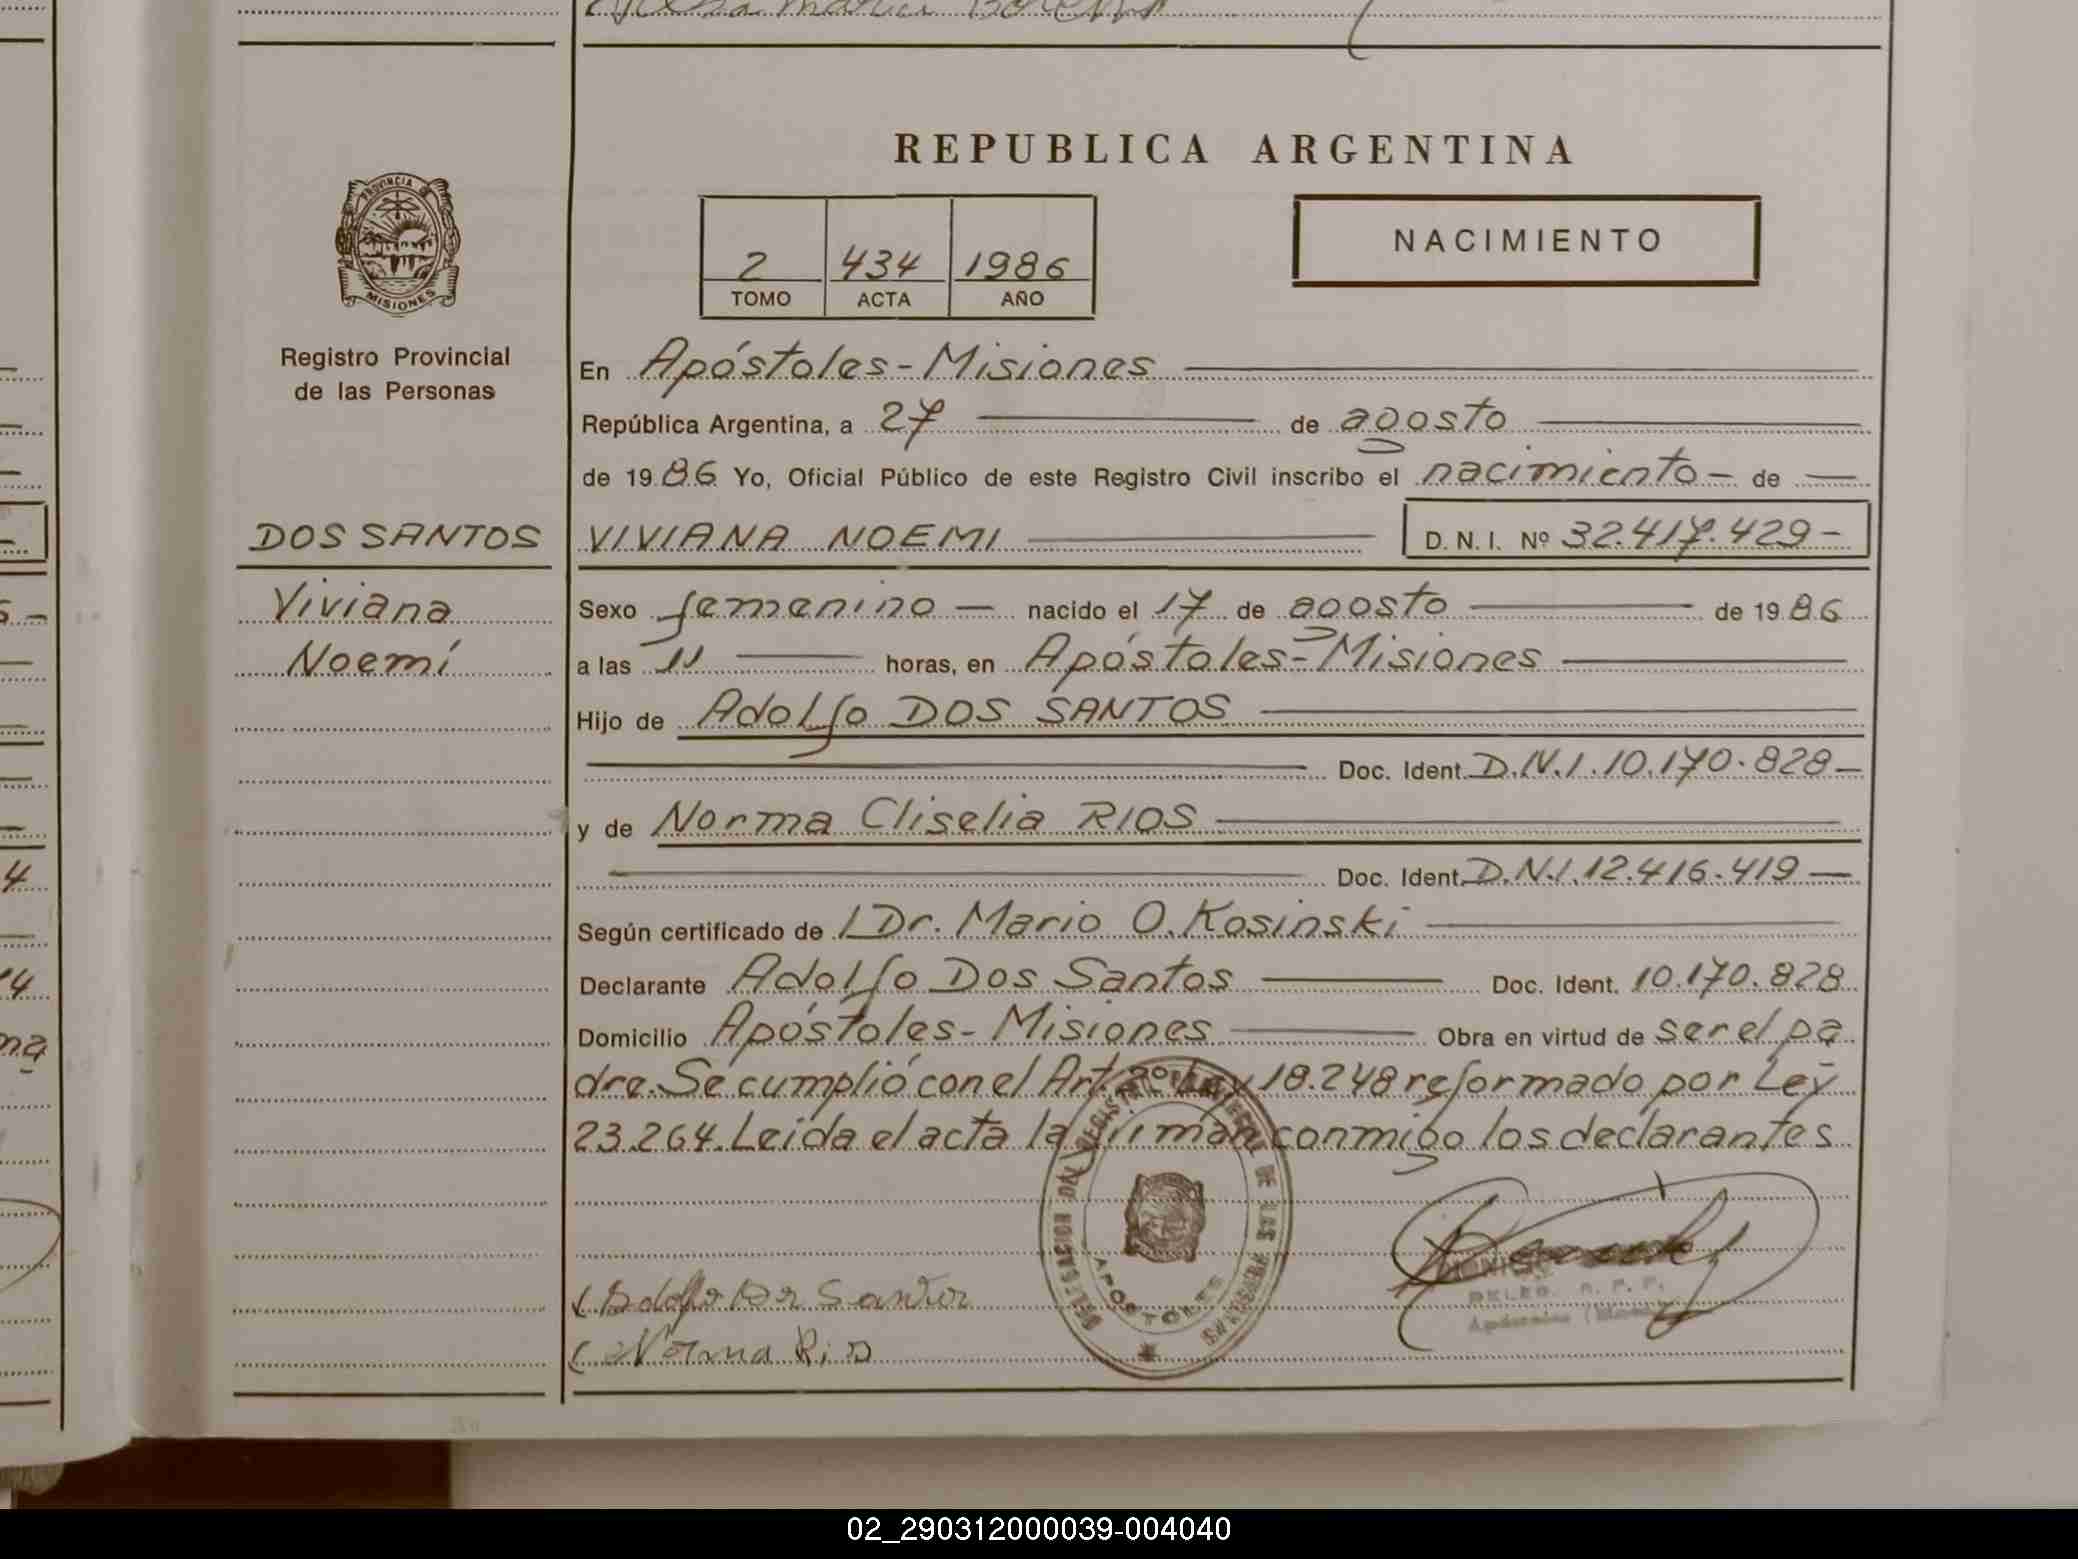 REPUBLICA ARGENTINA
PROVINCIA DE
MISIONES
Registro Provincial
de las Personas
2 434 1986
TOMO ACTA AÑO
NACIMIENTO
En Apóstoles-Misiones
República Argentina, a 27 de agosto
de 1986 Yo, Oficial Público de este Registro Civil inscribo el nacimiento - de
DOS SANTOS VIVIANA NOEMI D. N. I. Nº 32.417.429-
Viviana Sexo femenino - nacido el 17 de agosto de 1986
Noemí a las 11 horas, en Apóstoles-Misiones
Hijo de Adolfo DOS SANTOS
Doc. Ident. D.N.I. 10.170.828-
y de Norma Cliselia RIOS
Doc. Ident. D.N.I. 12.416.419-
Según certificado de Dr. Mario O. Kosinski
Declarante Adolfo Dos Santos Doc. Ident. 10.170.828
Domicilio Apóstoles-Misiones Obra en virtud de ser el pa
dre. Se cumplió con el Art. 20 Ley 18.248 reformado por Ley
23.264. Leída el acta la firman conmigo los declarantes
APOSTOLES
DELEG. R. P. P.
Apóstoles
Adolfo Dos Santos
Norma Rios
02_290312000039-004040